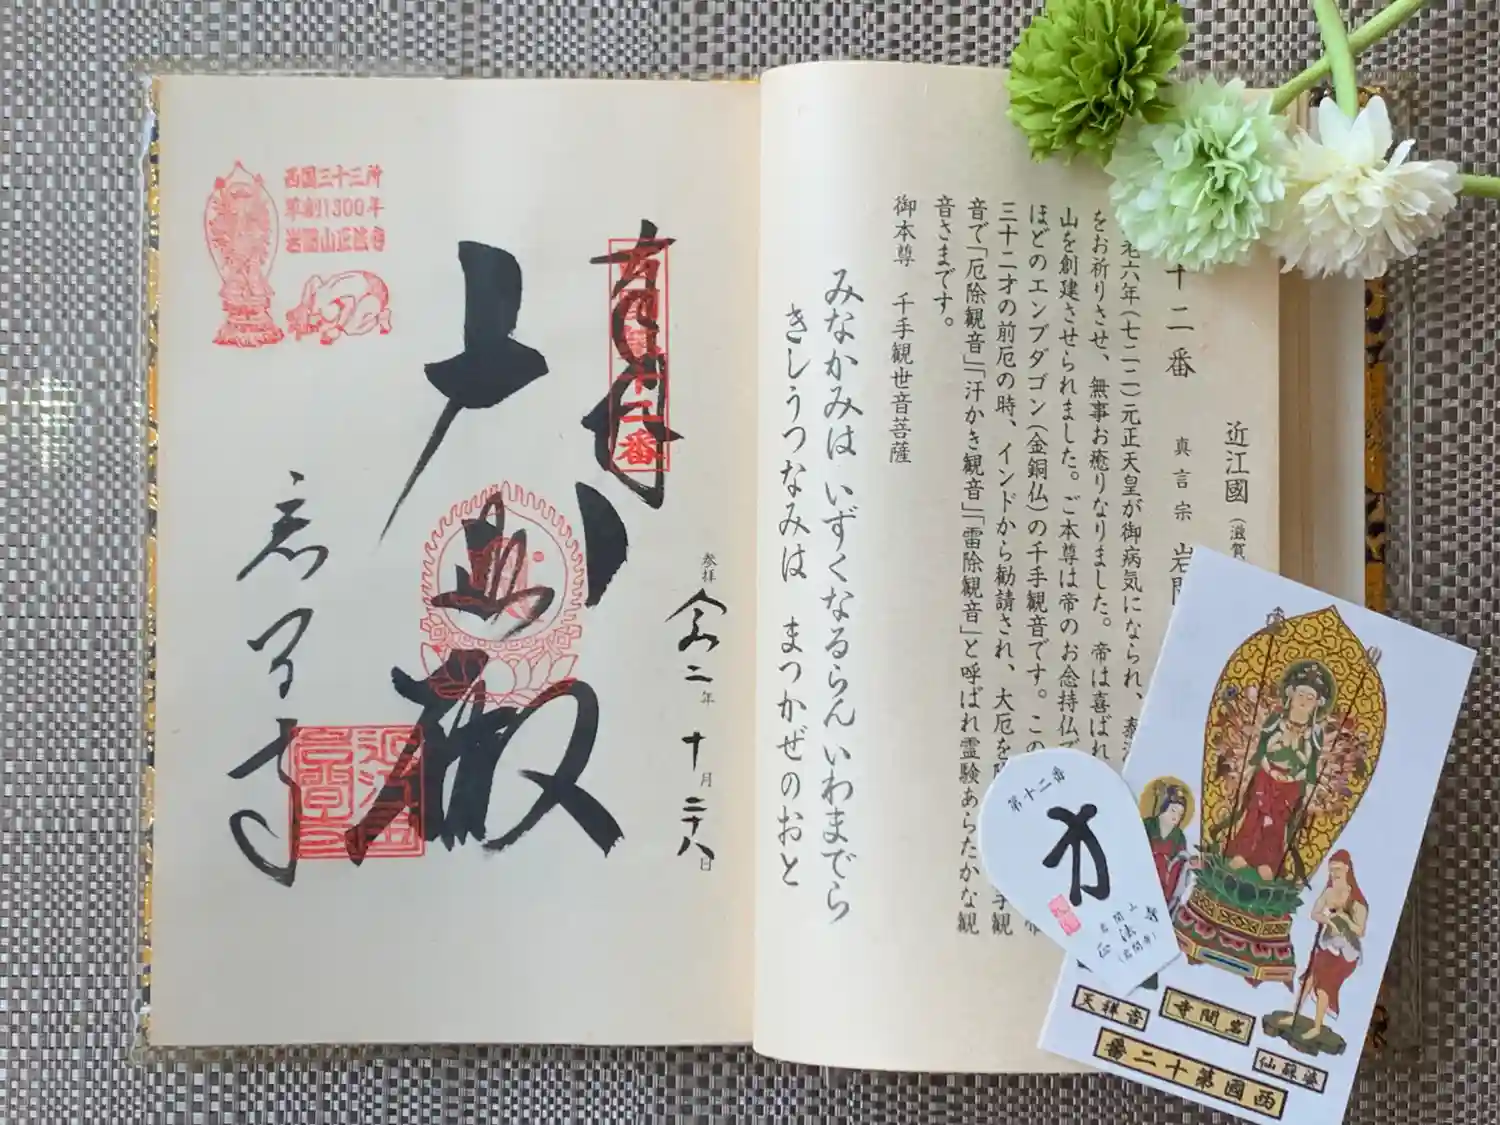 近江國（滋賀
十二番 真言宗 岩間
老六年（七二二）元正天皇が御病気になられ、泰澄
をお祈りさせ、無事お癒りなりました。帝は喜ばれ
山を創建させられました。ご本尊は帝のお念持仏で
ほどのエンブダゴン（金銅仏）の千手観音です。この
三十二才の前厄の時、インドから勧請され、大厄を
手観
音で「厄除観音」「汗かき観音」「雷除観音」と呼ばれ霊験あらたかな観
音さまです。
御本尊 千手観世音菩薩
みなかみは いずくなるらん いわまでら
きしうつなみは まつかぜのおと
参拝 令和二年十月二十八日
奉拝
西国第十二番
大悲殿
岩間寺
西国三十三所
草創1300年
岩間山正法寺
近江岩間山
第十二番
岩間山
正法寺
（岩間寺）
天祥吉
寺間岩
仙蘇婆
番二十第國西